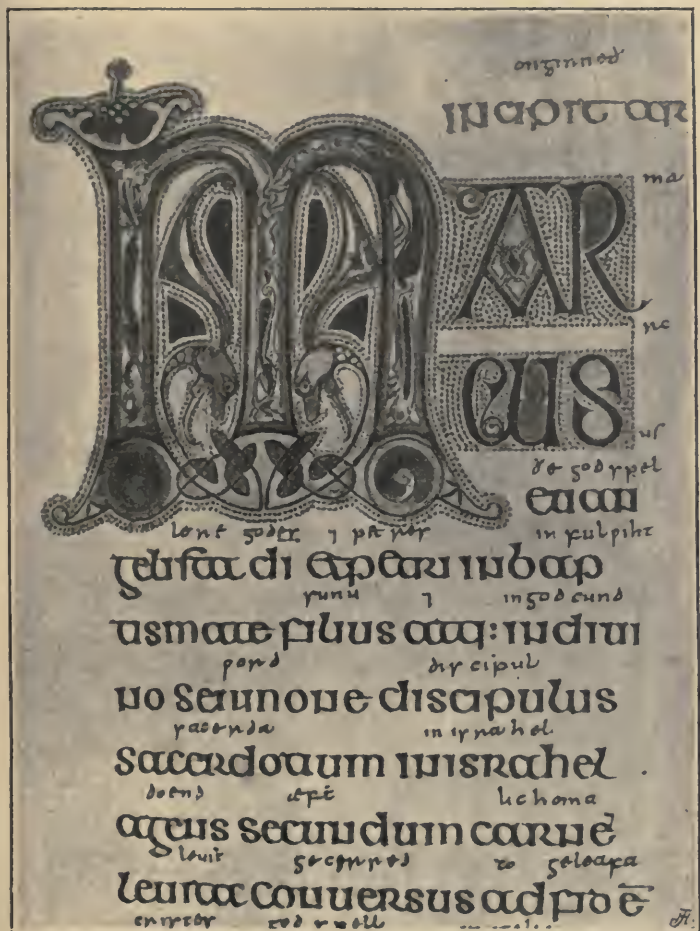 onginneð
incipit ar
ma
MAR
rc
CUS
us
ðe godspel
euan
godes ⁊ petres in fulpiht
gelista di et petri in bap
sunu ⁊ in godcund
tismate filius atq: in diui
word discipul
no sermone discipulus
sacerda in israhel
sacerdotium in israhel
doend æft lichoma
agens secundum carnē
leuit gecerred to geleafa
leuita conuersus ad fidē